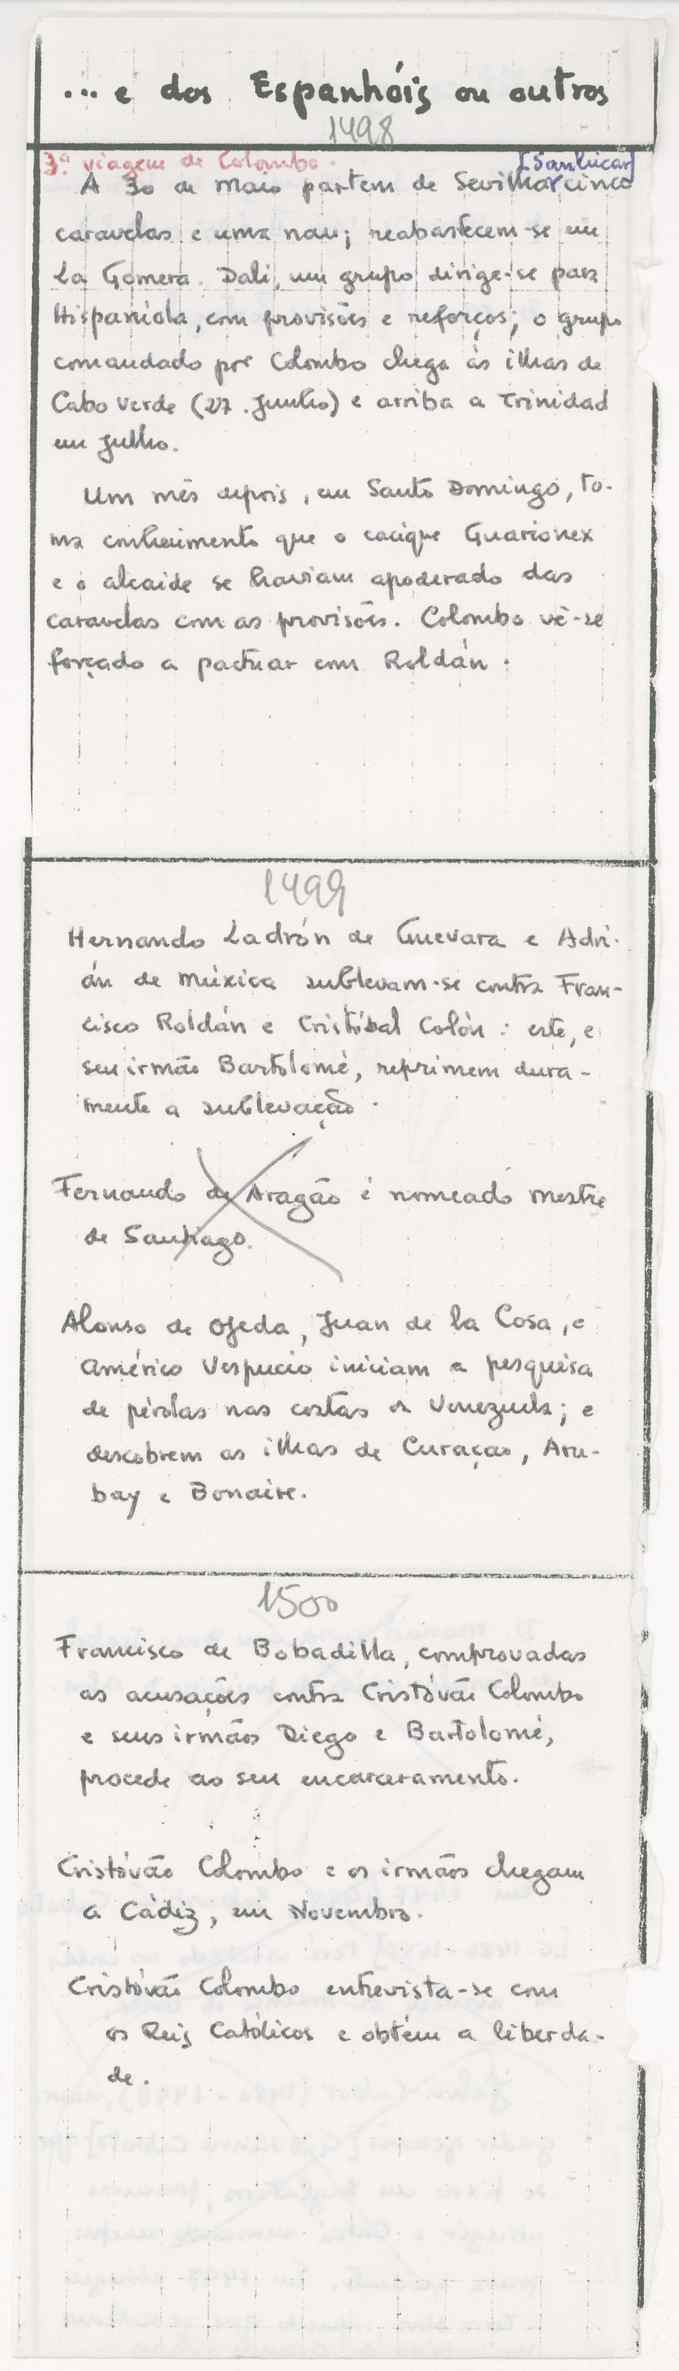 ... e dos Espanhóis ou outros
1498
3.ª viagem de Colombo.
[Sanlúcar]
A 30 de Maio partem de Sevilha cinco
caravelas e uma nau; reabastecem-se em
La Gomera. Dali, um grupo dirige-se para
Hispaniola, com provisões e reforços; o grupo
comandado por Colombo chega às ilhas de
Cabo Verde (27. Junho) e arriba a Trinidad
em Julho.
Um mês depois, em Santo Domingo, to-
ma conhecimento que o cacique Guarionex
e o alcaide se haviam apoderado das
caravelas com as provisões. Colombo vê-se
forçado a pactuar com Roldán.
1499
Hernando Ladrón de Guevara e Adri-
án de Múxica sublevam-se contra Fran-
cisco Roldán e Cristóbal Colón: este, e
seu irmão Bartolomé, reprimem dura-
mente a sublevação.
Fernando de Aragão é nomeado mestre
de Santiago.
Alonso de Ojeda, Juan de la Cosa, e
Américo Vespucio iniciam a pesquisa
de pérolas nas costas da Venezuela; e
descobrem as ilhas de Curaçao, Aru-
bay e Bonaire.
1500
Francisco de Bobadilla, comprovadas
as acusações contra Cristóvão Colombo
e seus irmãos Diego e Bartolomé,
procede ao seu encarceramento.
Cristóvão Colombo e os irmãos chegam
a Cádiz, em Novembro.
Cristóvão Colombo entrevista-se com
os Reis Católicos e obtém a liberda-
de.